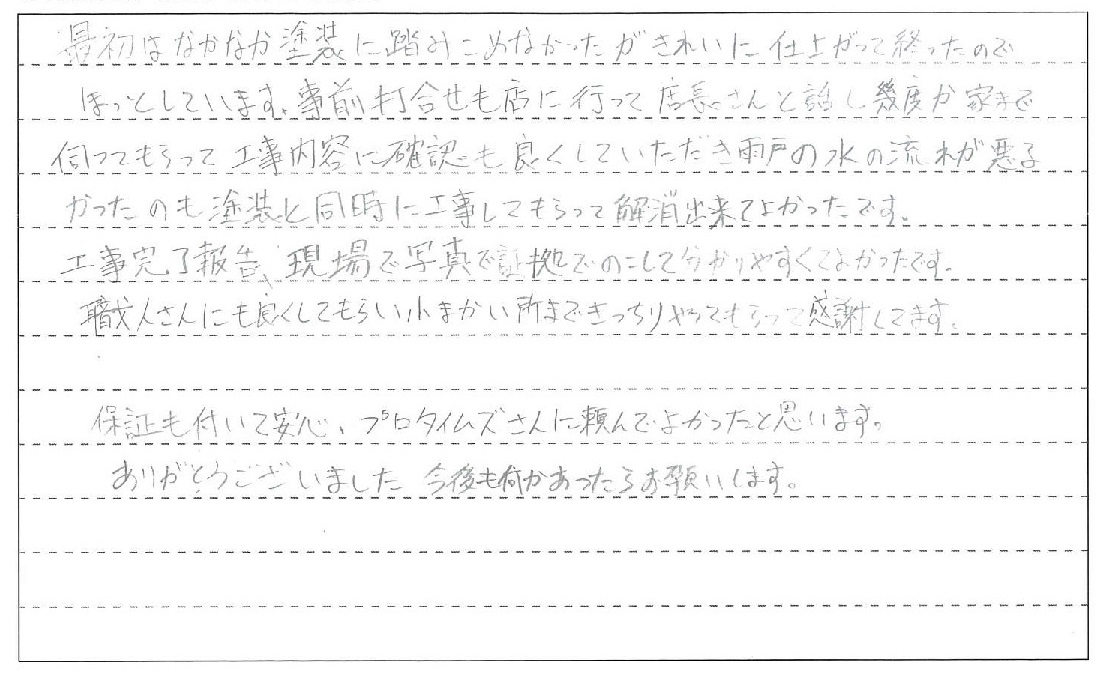 最初はなかなか塗装に踏みこめなかったがきれいに仕上がって終ったので
ほっとしています。事前打合せも店に行って店長さんと話し幾度か家まで
伺ってもらって工事内容に確認も良くしていただき雨戸の水の流れが悪る
かったのも塗装と同時に工事してもらって解消出来てよかったです。
工事完了報告、現場で写真で証拠でのこして分かりやすくてよかったです。
職人さんにも良くしてもらい小まかい所まできっちりやってもらって感謝してます。
保証も付いて安心、プロタイムズさんに頼んでよかったと思います。
ありがとうございました 今後も何かあったらお願いします。